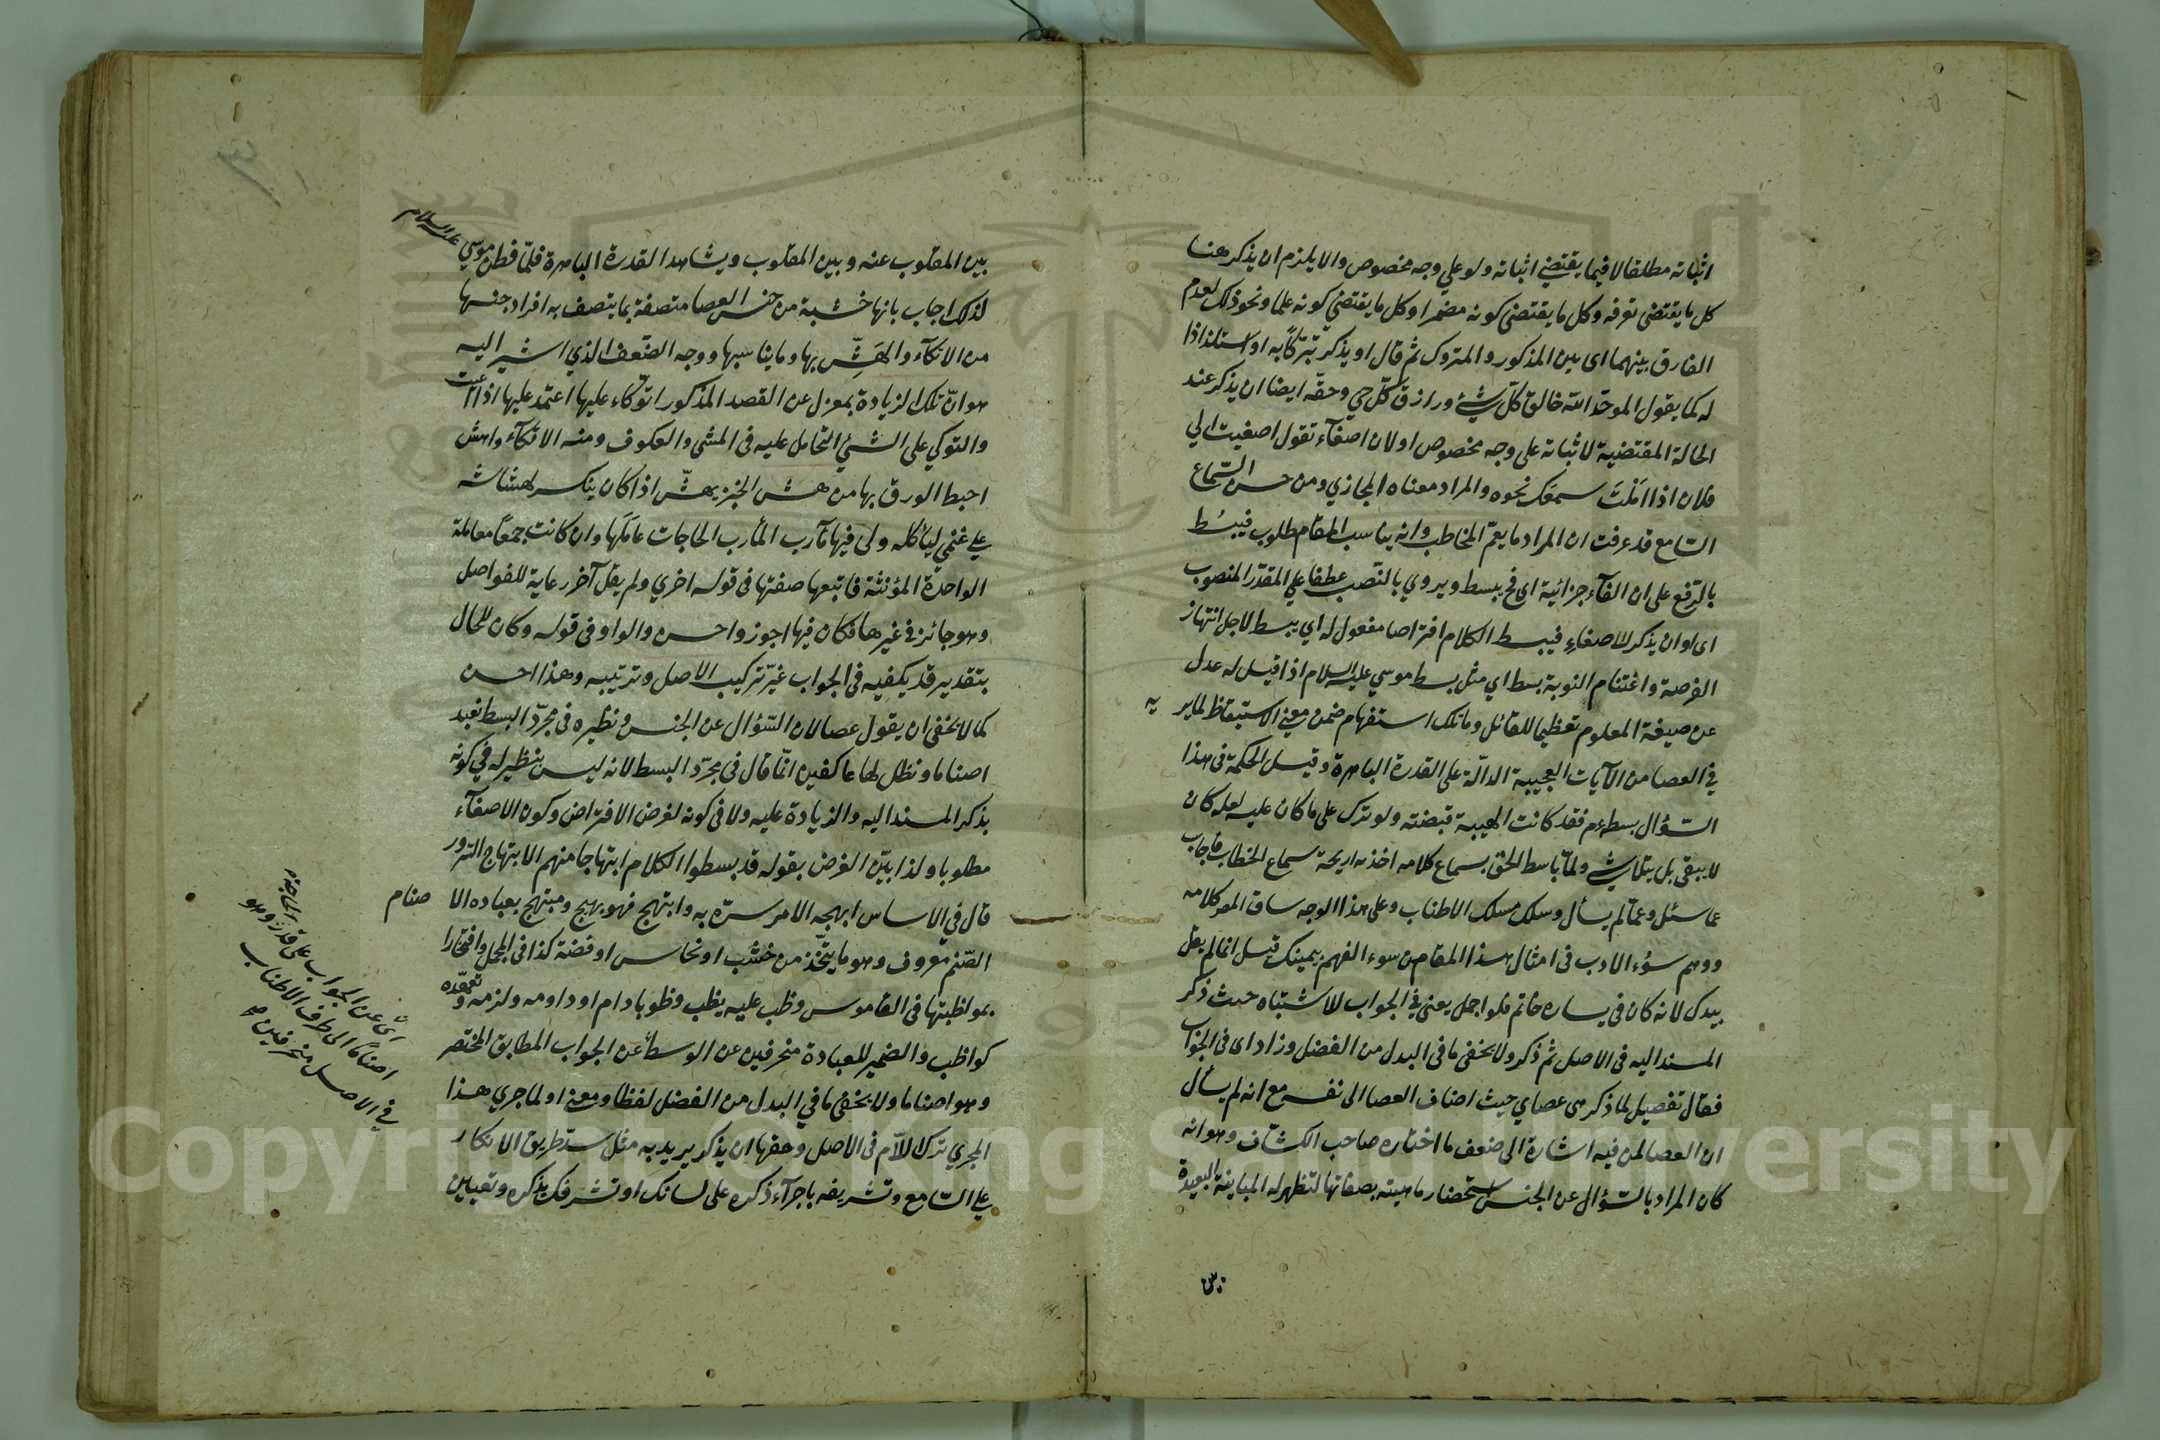 اثباته مطلقا لا فيما يقتضي اثباته ولو علي وجه مخصوص والا يلزم ان يذكر هنا
كل ما يقتضى تعرفه وكل ما يقتضى كونه مضمرا وكل ما يقتضي كونه علما ونحو ذلك لعدم
الفارق بينهما اى بين المذكور والمتروك ثم قال او يذكر تبركًا به او استلذاذا
له كما يقول الموحد الله خالق كلّ شئ ورازق كلّ حي وحقّه ايضا ان يذكر عند
الحالة المقتضية لاثباته على وجه مخصوص اولان اصغآء تقول اصغيت الي
فلان اذا املْتَ سمعك نحوه والمراد معناه المجازي ومن حسن السّماع
السّامع قد عرفت ان المراد ما يعمّ المخاطب وانه يناسب المقام مطلوب فيبسُط
بالرّفع على ان الفآء جزائية اى فح يبسط ويروي بالنّصب عطفا علي المقدّر المنصوب
اى او ان يذكر للاصغاء فيبسط الكلام افتراصا مفعول له اي يبسط لاجل انتهاز
الفرصة واغتنام النوبة بسط اي مثل بسط موسي عليه السلام اذا قيل له عدل
عن صيغة المعلوم تعظيما للقائل وما تلك استفهام ضمن معنى الاستيقاظ لما ير يه
في العصا من الآيات العجيبة الدالّة على القدرة الباهرة وقيل الحكمة في هذا
السّؤال بسطه م فقد كانت الهيبة قبضته ولو ترك على ما كان عليه لعله كان
لا يبقى بل يتلاشي ولمّا باسط الحق بسماع كلامه اخذه اريحة سماع الخطاب فاجاب
عما سئل وعمّا لم يسأل وسلك مسلك الاطناب وعلى هذا الوجه ساق المصر كلامه
ووهم سؤء الادب في امثال هذا المقام من سوء الفهم بيمينك قيل انما لم يقل
بيدك لانه كان في يساره خاتم فلو اجمل يعنى في الجواب للاشتباه حيث ذكر
المسند اليه فى الاصل ثم ذكر ولا يخفى ما في البدل من الفضل وزاد اى فى الجواب
فقال تفصيل لما ذكر هى عصاي حيث اضاف العصا الى نفسه مع انه لم يسأل
ان العصا لمن فيه اشارة الى ضعف ما اختاره صاحب الكشّاف وهو انه
كان المراد بالسّؤال عن الجنس استحضار ماهيته بصفاتها لتظهر له المباينة البعيدة
بين
بين المقلوب عنه وبين المقلوب ويشاهد القدرة الباهرة فلمّا فطن موسي عليه السلام
لذلك اجاب بانها خشبة من جنس العصا متصفة بما يتصف به افراد جنسها
من الاتكآء والهَشِّ بها وما يناسبها ووجه الضّعف الذي اشير اليه
هو انّ تلك الزيادة بمعزل عن القصد المذكور اتوكّاء عليها اعتمد عليها اذا اعييت
والتوكي على الشئ التحامل عليه فى المشى والعكوف ومنه الاتكآء واهش
احبط الورق بها من هش الخبز يهشّ اذا كان ينكسر لهشاشته
علي غنمي ليأكله ولى فيها مآرب المأرب الحاجات عامَلَها وان كانت جمعًا معاملة
الواحدة المؤنثة فاتبعها صفتها فى قوله اخري ولم يقل آخر رعاية للفواصل
وهو جائز في غيرها فكان فيها اجوز واحسن والواو فى قوله وكان للحال
بتقدير قد يكفيه فى الجواب غيّر تركيب الاصل وترتيبه وهذا احسن
كما لا يخفى ان يقول عصا لان السّؤال عن الجنس ونظيره فى مجرّد البسط نعبد
اصناما ونظل لها عاكفين انّما قال فى مجرّد البسط لانه ليس بنظير له في كونه
بذكر المسند اليه والزيادة عليه ولا فى كونه لغرض الافتراض وكون الاصغآء
مطلوبا ولذا بيّن الغرض بقوله قد بسطوا الكلام ابتهاجا منهم الابتهاج السّرور
قال في الاساس ابهجه الامر سرّه به وابتهج فهو بهيج ومبتهج بعباده الا صنام
الصّنم معروف وهو ما يتّخذ من خشب او نحاس او فضة كذا فى المجمل وافتخارا
بمواظبتها فى القاموس وظب عليه يظب وظوبا دام او داومه ولزمه وتعهّده
كواظب والضمير للعبادة منحرفين عن الوسط عن الجواب المطابق المختصر
وهو اصناما ولا يخفى ما في البدل من الفضل لفظا ومعنى او لما جري هذا
المجري ترك اللّام فى الاصل وحقها ان يذكر يريد به مثل سدّ طريق الانكار
علي السّامع وتشريفه باجرآء ذكره على لسانك او تشرفك بذكره وتعيين
اى عن الجواب على قدره وهو
اصنامًا الى طرف الاطناب
في الاصل منحرفين